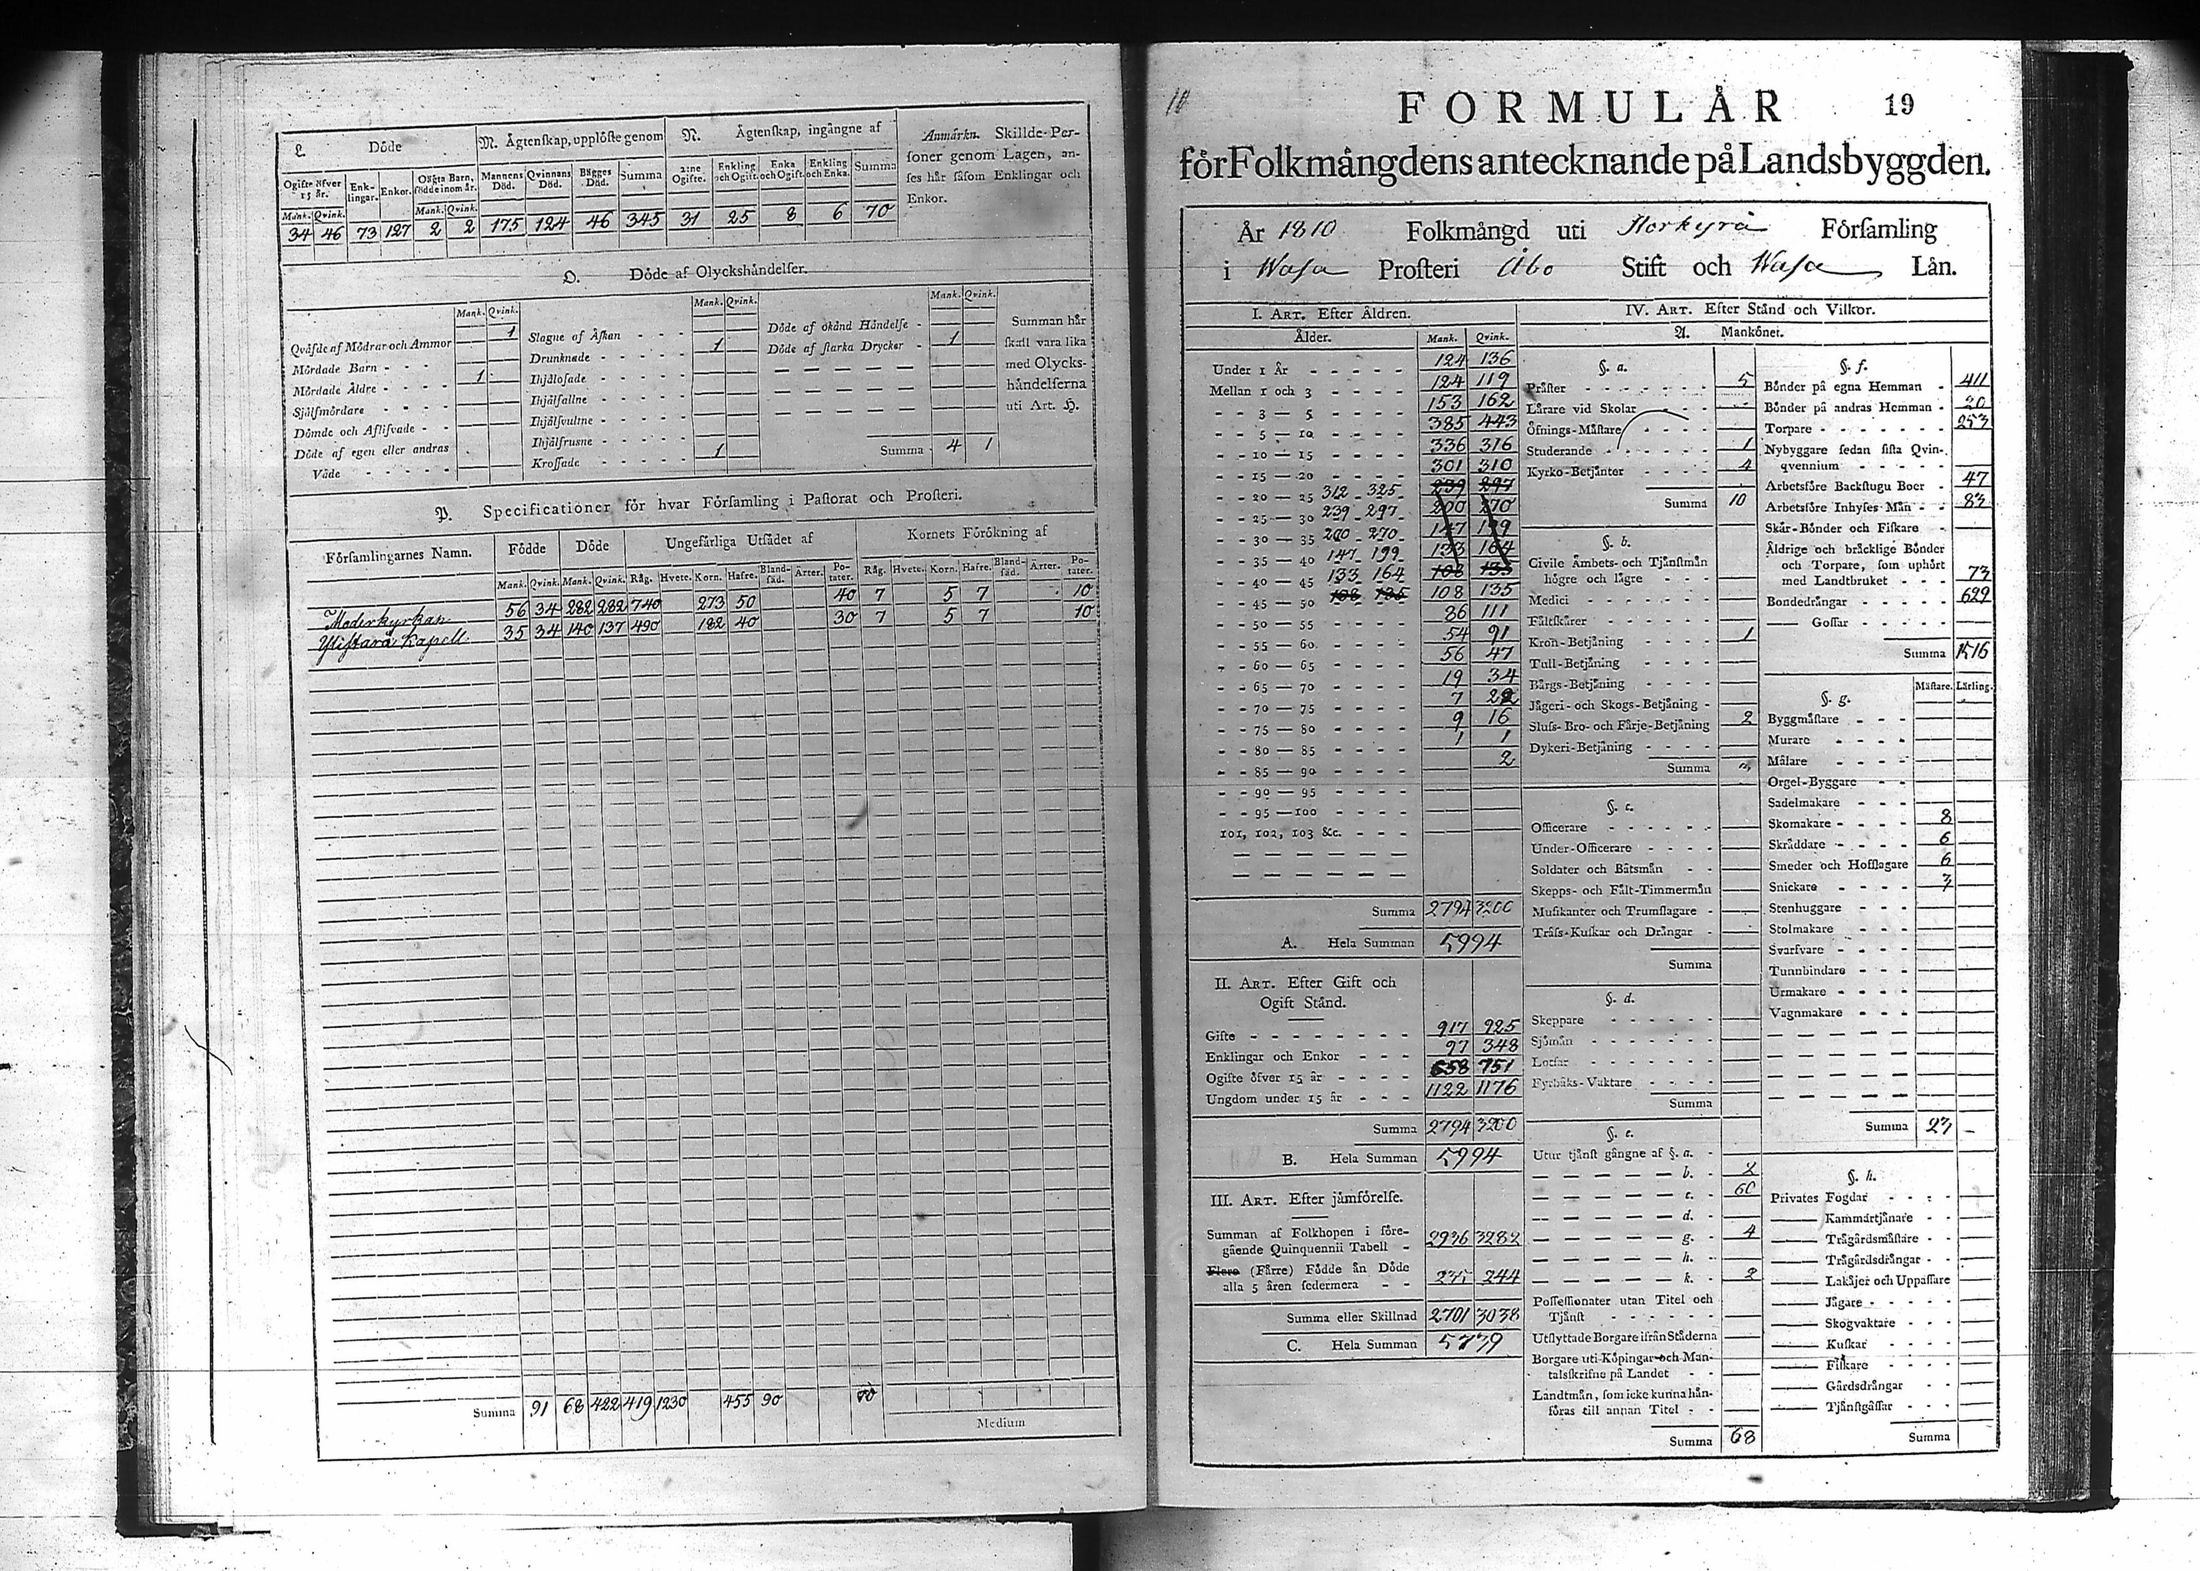 L Döde
Ogifte öfver 15 år. Enklingar. Enkor. Oägta Barn, födde inom år.
Mank. Qvink. Mank. Qvink.
34 46 73 127 2 2
M. Ägtenskap, upplöste genom
Mannens Död. Qvinnans Död. Bägges Död. Summa
175 124 46 345
N. Ägtenskap, ingångne af
2:ne Ogifte. Enkling och Ogift. Enka och Ogift. Enkling och Enka. Summa
31 25 8 6 70
Anmärkn. Skillde Personer genom Lagen, anses här såsom Enklingar och Enkor.
O. Döde af Olyckshändelser.
Mank. Qvink.
Qväfde af Mödrar och Ammor 1
Mördade Barn
Mördade Äldre 1
Självmördare
Dömde och Aflifvade
Döde af egen eller andras Våde
Mank. Qvink.
Slagne af Åskan
Drunknade 1
Ihjälosade
Ihjälfallne
Ihjälsvultne
Ihjälfrusne
Krossade 1
Mank. Qvink.
Döde af okänd Händelse
Döde af starka Drycker 1
Summa 4 1
Summan här skall vara lika med Olyckshändelserna uti Art. H.
P. Specificationer för hvar Församling i Pastorat och Prosteri.
Församlingarnes Namn. Födde Döde Ungefärliga Utsädet af Kornets Förökning af
Mank. Qvink. Mank. Qvink. Råg. Hvete. Korn. Hafre. Blandsäd. Ärter. Potater. Råg. Hvete. Korn. Hafre. Blandsäd. Ärter. Potater.
Moderkyrkan 56 34 282 282 740 273 50 40 7 5 7 10
Ylistaro Kapell 35 34 140 137 490 182 40 30 7 5 7 10
Summa 91 68 422 419 1230 455 90 70
Medium
10
FORMULÄR 19
för Folkmängdens antecknande på Landsbyggden.
År 1810 Folkmängd uti Storkyro Församling
i Wasa Prosteri Åbo Stift och Wasa Län.
I. ART. Efter Åldren.
Ålder. Mank. Qvink.
Under 1 År 124 136
Mellan 1 och 3 124 119
3 — 5 153 162
5 — 10 385 443
10 — 15 336 316
15 — 20 301 310
20 — 25 312 325 239 297
25 — 30 239 297 200 270
30 — 35 200 270 147 199
35 — 40 147 199 133 164
40 — 45 133 164 108 135
45 — 50 108 135 108 135
50 — 55 86 111
55 — 60 54 91
60 — 65 56 47
65 — 70 19 34
70 — 75 7 22
75 — 80 9 16
80 — 85 1 1
85 — 90 2
90 — 95
95 — 100
101, 102, 103 &c.
Summa 2794 3200
A. Hela Summan 5994
II. ART. Efter Gift och Ogift Stånd.
Gifte 917 925
Enklingar och Enkor 97 348
Ogifte öfver 15 år 658 751
Ungdom under 15 år 1122 1176
Summa 2794 3200
B. Hela Summan 5994
III. ART. Efter jämförelse.
Summan af Folkhopen i föregående Quinquennii Tabell 2936 3282
Flere (Färre) Födde än Döde alla 5 åren sedermera 235 244
Summa eller Skillnad 2701 3038
C. Hela Summan 5739
IV. ART. Efter Stånd och Vilkor.
A. Mankönet.
§. a.
Präster 5
Lärare vid Skolar
Öfnings-Mästare
Studerande 1
Kyrko-Betjänter 4
Summa 10
§. b.
Civile Ämbets- och Tjänstmän högre och lägre
Medici
Fältskärer
Kron-Betjäning 1
Tull-Betjäning
Bärgs-Betjäning
Jägeri- och Skogs-Betjäning
Sluss- Bro- och Färje-Betjäning 2
Dykeri-Betjäning
Summa
§. c.
Officerare
Under-Officerare
Soldater och Båtsmän
Skepps- och Fält-Timmermän
Musikanter och Trumslagare
Träss-Kuskar och Drängar
Summa
§. d.
Skeppare
Sjömän
Lotsar
Fyrbåks-Vaktare
Summa
§. e.
Utur tjänst gångne af §. a.
b. 2
c. 60
d.
g. 4
h.
k. 2
Possessionater utan Titel och Tjänst
Utflyttade Borgare ifrån Städerna
Borgare uti Köpingar och Mantalsskrifne på Landet
Landtmän, som icke kunna hänföras till annan Titel
Summa 68
§. f.
Bönder på egna Hemman 411
Bönder på andras Hemman 20
Torpare 253
Nybyggare sedan sista Qvinqvennium
Arbetsföre Backstugu Boer 47
Arbetsföre Inhyses Män 83
Skär-Bönder och Fiskare
Äldrige och bräcklige Bönder och Torpare, som uphört med Landtbruket 73
Bondedrängar 629
Gossar
Summa 1516
§. g. Mästare. Lärling.
Byggmästare
Murare
Målare
Orgel-Byggare
Sadelmakare
Skomakare 8
Skräddare 6
Smeder och Hofslagare 6
Snickare 3
Stenhuggare
Stolmakare
Svarfvare
Tunnbindare
Urmakare
Vagnmakare
Summa 23 –
§. h.
Privates Fogdar
Kammartjänare
Trägårdsmästare
Trägårdsdrängar
Lakäjer och Uppassare
Jägare
Skogvaktare
Kuskar
Fiskare
Gårdsdrängar
Tjänstgåssar
Summa